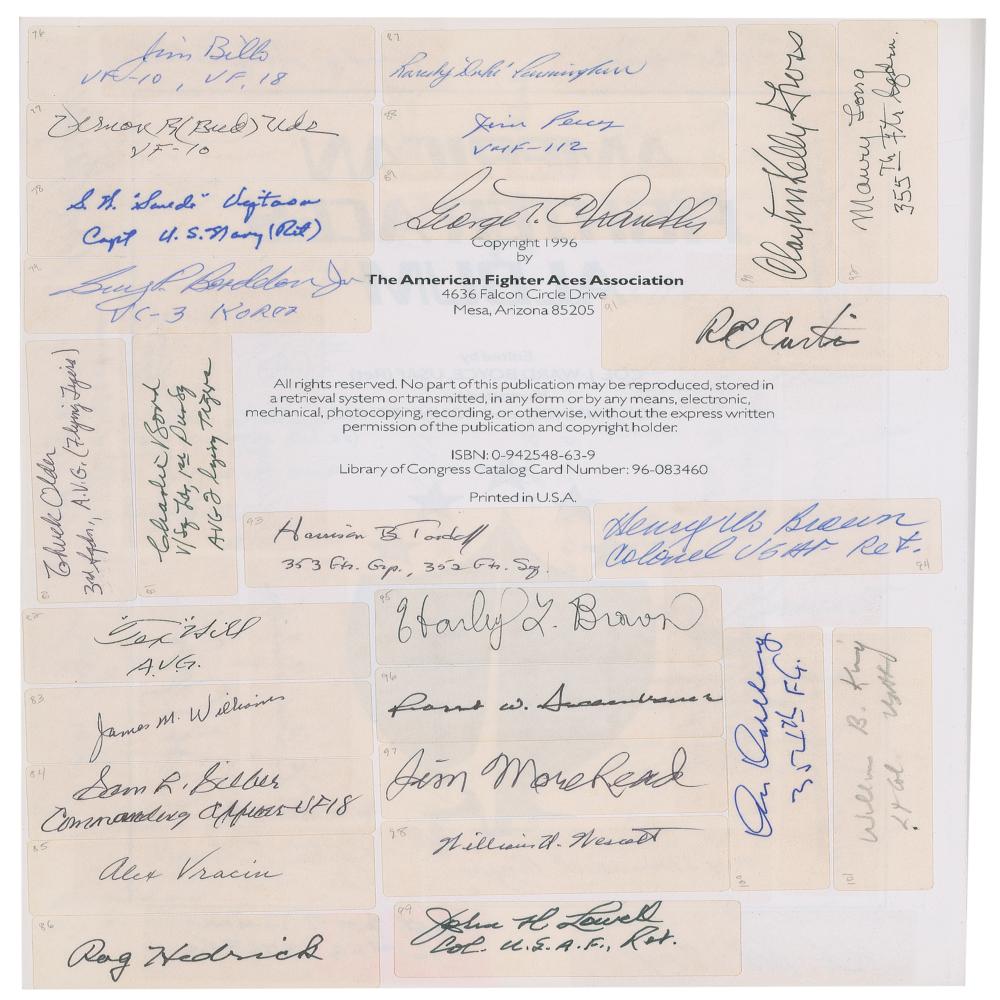 76
Jim Billo
VF-10, VF, 18
77
Vernon R (Bud) Ude
VF-10
78
S. N. "Swede" Vejtasa
Capt U.S. Navy (Ret)
79
Guy P. Bordelon Jr
VC-3 KOREA
87
Randy "Duke" Cunningham
88
Jim Percy
VMF-112
89
George T. Chandler
90
Clayton Kelly Gross
92
Maury Long
355th Ftr Sqdrn.
Copyright 1996
by
The American Fighter Aces Association
4636 Falcon Circle Drive
Mesa, Arizona 85205
91
R E Curtis
All rights reserved. No part of this publication may be reproduced, stored in
a retrieval system or transmitted, in any form or by any means, electronic,
mechanical, photocopying, recording, or otherwise, without the express written
permission of the publication and copyright holder.
ISBN: 0-942548-63-9
Library of Congress Catalog Card Number: 96-083460
Printed in U.S.A.
80
Chuck Older
3rd Sqdn., A.V.G. (Flying Tigers)
81
Charlie Bond
V/Sq Ldr, 1st Pursq
AVG Flying Tigers
93
Harrison B. Tordoff
353 Ftr. Grp., 352 Ftr. Sq.
Henry W Brown
Colonel USAF Ret.
94
82
"Tex" Hill
A.V.G.
83
James M. Williams
84
Sam L. Silber
Commanding Officer VF18
85
Alex Vraciu
86
Rog Hedrick
95
Harley L. Brown
96
W.
97
Jim Morehead
98
William H. Wescott
99
John H Lowell
Col. U.S.A.F., Ret.
Don Dahlberg
354th FG.
101
William B. King
Lt Col USAF